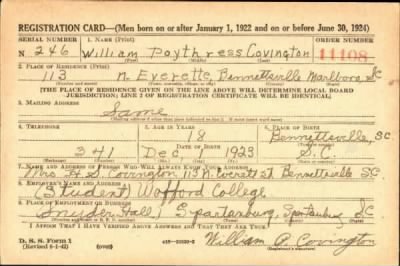 REGISTRATION CARD—(Men born on or after January 1, 1922 and on or before June 30, 1924)
SERIAL NUMBER 1. NAME (Print) ORDER NUMBER
N 246 William Poythress Covington 11108
2. PLACE OF RESIDENCE (Print)
113 N. Everette, Bennettsville Marlboro SC
[THE PLACE OF RESIDENCE GIVEN ON THE LINE ABOVE WILL DETERMINE LOCAL BOARD
JURISDICTION; LINE 2 OF REGISTRATION CERTIFICATE WILL BE IDENTICAL]
3. MAILING ADDRESS
Same
4. TELEPHONE 5. AGE IN YEARS 6. PLACE OF BIRTH
18 Bennettsville, SC
DATE OF BIRTH
341 Dec 1923 S.C.
7. NAME AND ADDRESS OF PERSON WHO WILL ALWAYS KNOW YOUR ADDRESS
Mrs. H. S. Covington 113 N. Everett St Bennettsville SC
8. EMPLOYER'S NAME AND ADDRESS
(Student) Wofford College
9. PLACE OF EMPLOYMENT OR BUSINESS
Snyder Hall) Spartanburg, Spartanburg SC
I AFFIRM THAT I HAVE VERIFIED ABOVE ANSWERS AND THAT THEY ARE TRUE.
D. S. S. Form 1
(Revised 6-1-42) (over) William P. Covington